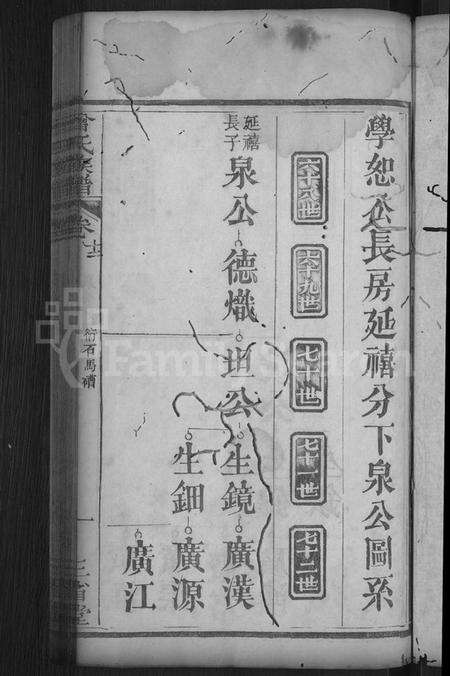 學恕公長房延禧分下泉公圖系
六十八世
六十九世
七十世
七十一世
七十二世
延禧
長子
泉公
德熾
世公
生鏡
廣漢
生鈿
廣源
廣江
曾氏族譜
卷
衍石馬禱
一
三省堂
FamilySearch